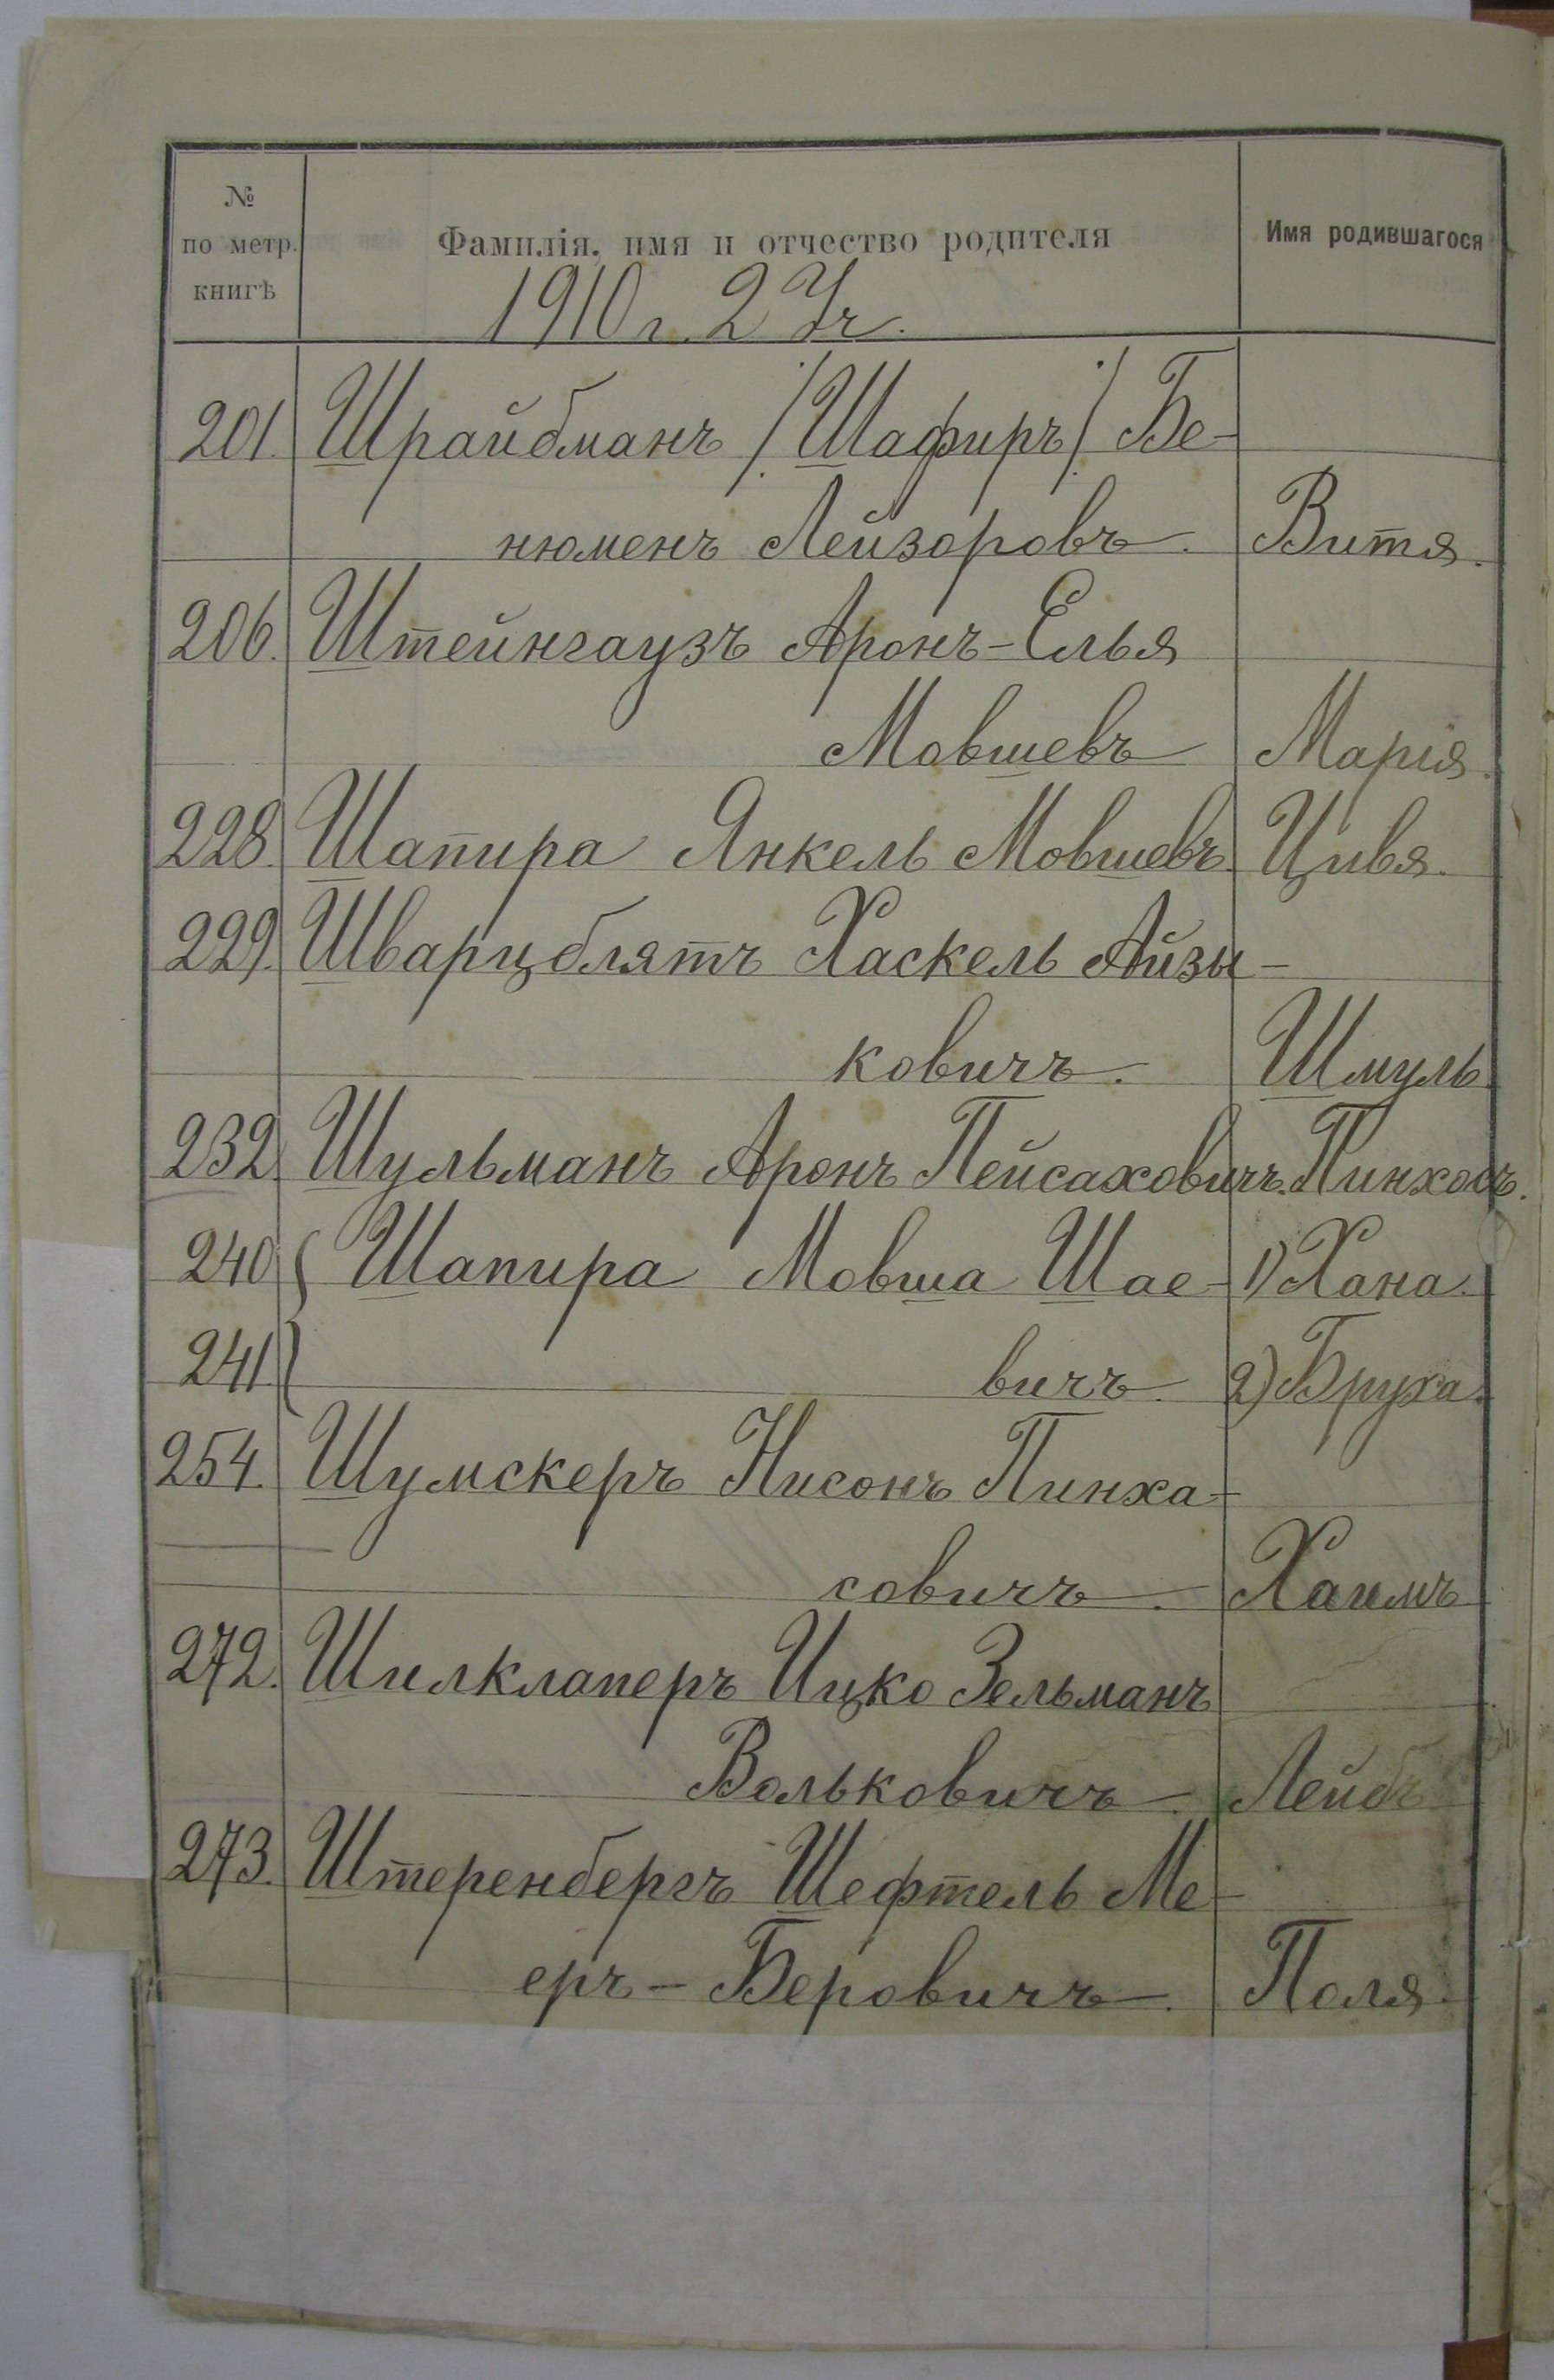 № по метр. книгѣ
Фамилія, имя и отчество родителя
Имя родившагося
1910 г. 2 Уч.
201. Шрайбманъ /Шафиръ/ Бе-
нюменъ Лейзоровъ. Витя.
206. Штейнгаузъ Аронъ-Елья
Мовшевъ Марія.
228. Шапира Янкель Мовшевъ. Цивя.
229. Шварцблятъ Хаскель Айзы-
ковичъ. Шмуль.
232. Шульманъ Аронъ Пейсаховичъ. Пинхосъ.
240 { Шапира Мовша Шае- 1) Хана.
241 } вичъ. 2) Бруха.
254. Шумскеръ Нисонъ Пинха-
совичъ. Хаимъ
272. Шилклаперъ Ицко Зельманъ
Вольковичъ. Лейбъ
273. Штеренбергъ Шефтель Ме-
еръ-Беровичъ. Поля.